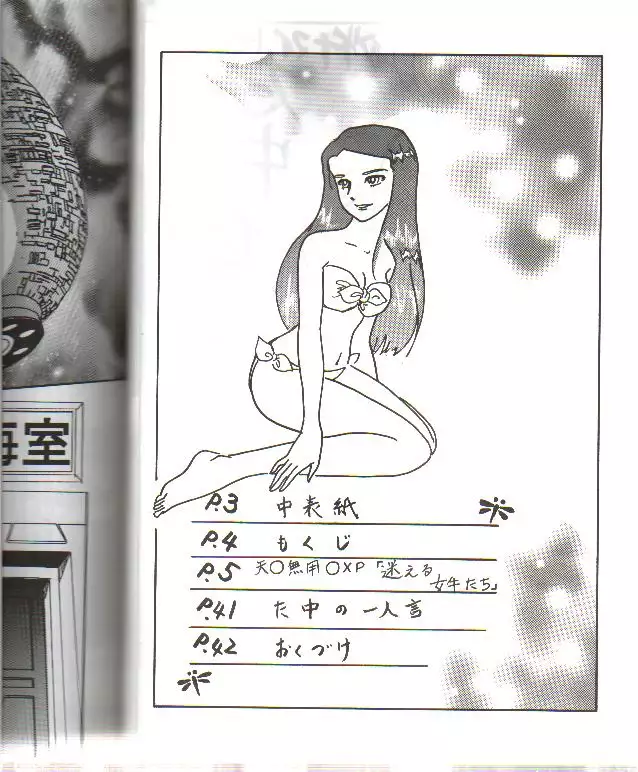 P.3 中表紙
P.4 もくじ
P.5 天〇無用〇XP「迷える
女牛たち」
P.41 た中の一人言
P.42 おくづけ
海室